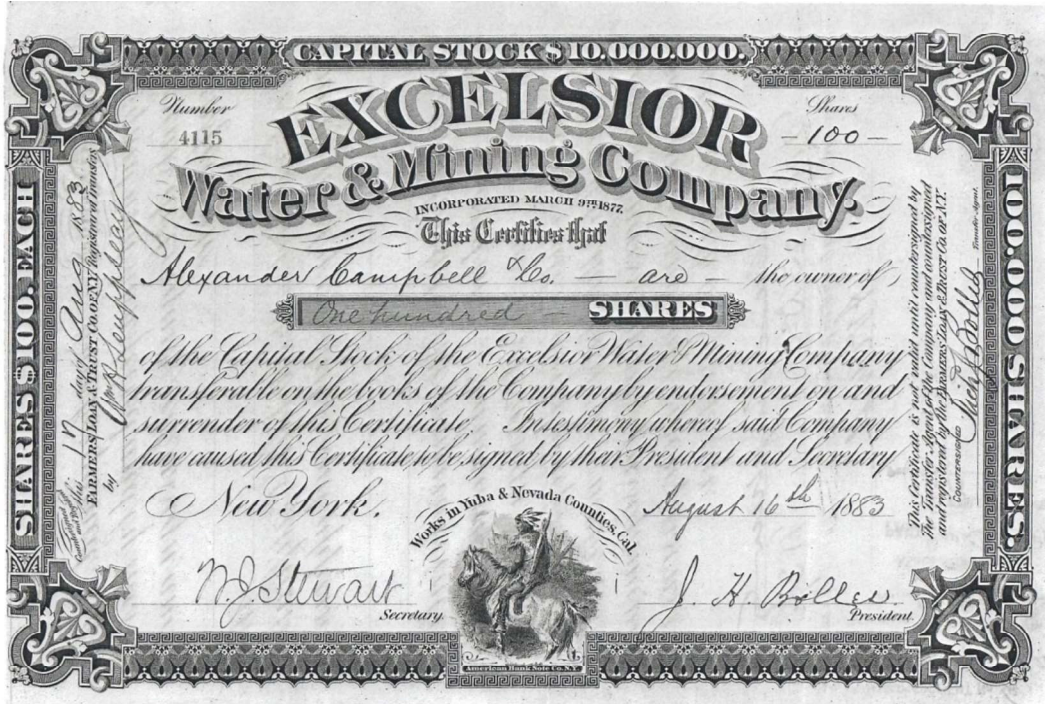 CAPITAL STOCK $ 10.000.000.
Number
4115
Shares
- 100 -
EXCELSIOR
Water & Mining Company.
INCORPORATED MARCH 9TH 1877.
This Certifies that
Alexander Campbell & Co. — are — the owner of
One hundred — SHARES
of the Capital Stock of the Excelsior Water & Mining Company
transferable on the books of the Company by endorsement on and
surrender of this Certificate. In testimony whereof said Company
have caused this Certificate to be signed by their President and Secretary
New York, August 16th 1883
Works in Yuba & Nevada Counties, Cal.
W. J. Stewart
Secretary.
President.
American Bank Note Co. N.Y.
SHARES $ 100. EACH
this 17 day of Aug 1883
FARMERS LOAN & TRUST Co. OF N.Y. Registrar of Transfers
by
100.000 SHARES.
This Certificate is not valid until countersigned by
the Transfer Agent of the Company and countersigned
and registered by the FARMERS LOAN & TRUST Co. OF N.Y.
COUNTERSIGNED
Transfer Agent.